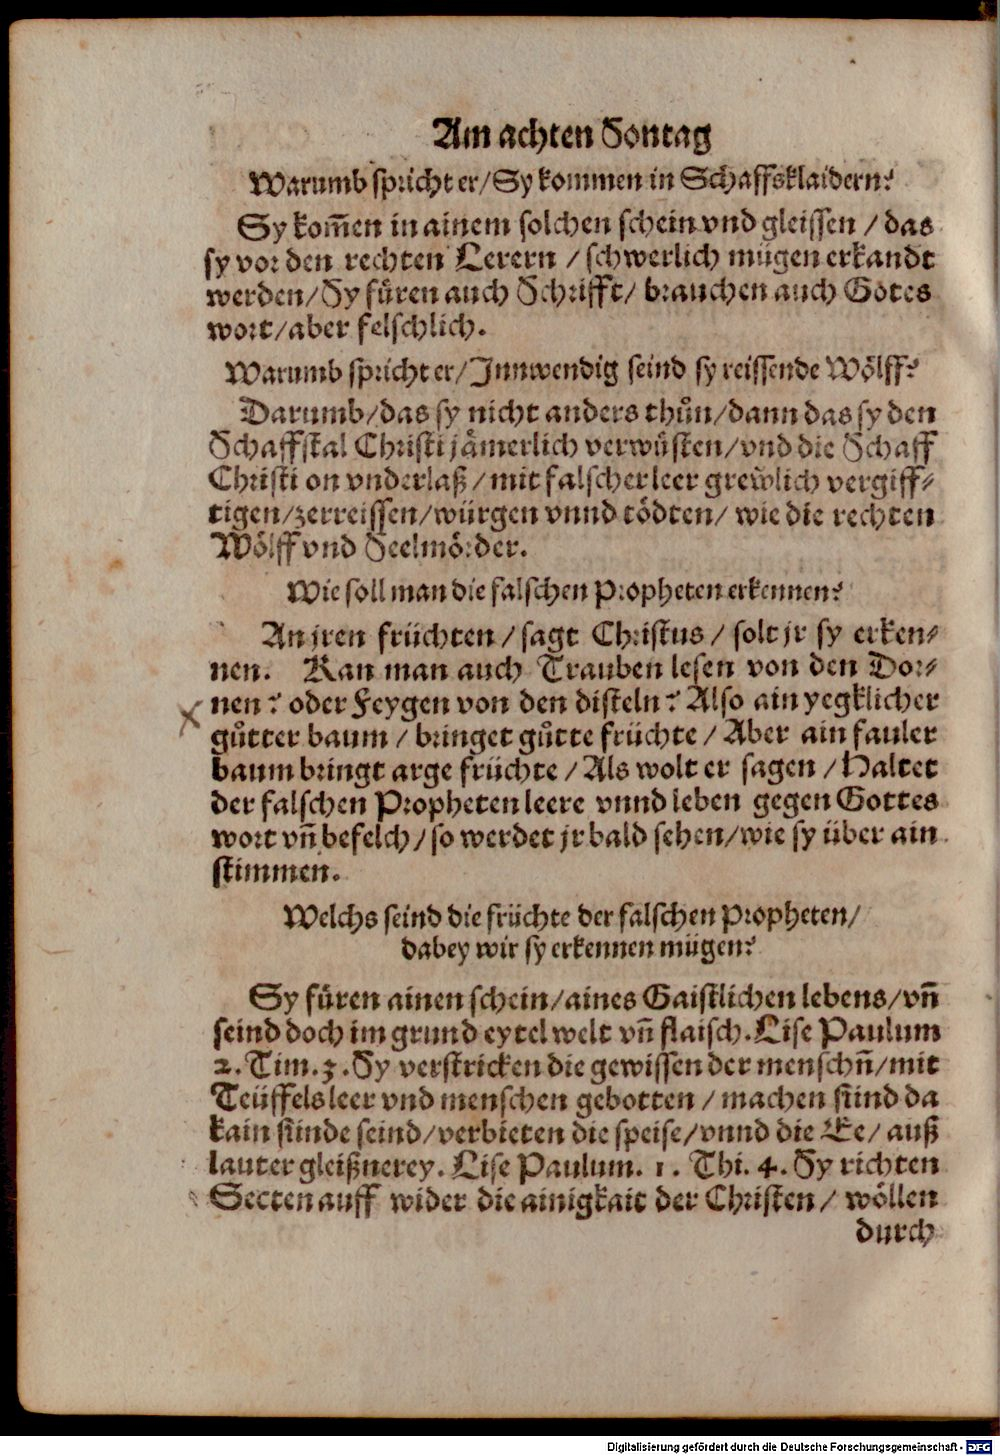 Am achten Sontag
Warumb spricht er/ Sy kommen in Schaffsklaidern?
Sy kom̃en in ainem solchen schein vnd gleissen / das
sy vor den rechten Lerern / schwerlich mügen erkandt
werden/ Sy fuͤren auch Schrifft/ brauchen auch Gotes
wort/ aber felschlich.
Warumb spricht er/ Innwendig seind sy reissende Woͤlff?
Darumb/ das sy nicht anders thuͦn/ dann das sy den
Schaffstal Christi jaͤmerlich verwuͤsten/ vnd die Schaff
Christi on vnderlaß / mit falscher leer grewlich vergiff⸗
tigen/ zerreissen/ würgen vnnd toͤdten/ wie die rechten
Woͤlff vnd Seelmoͤrder.
Wie soll man die falschen Propheten erkennen?
An jren früchten / sagt Christus / solt jr sy erken⸗
nen. Kan man auch Trauben lesen von den Dor⸗
nen? oder Feygen von den disteln? Also ain yegklicher
guͦtter baum / bringet guͦtte früchte / Aber ain fauler
baum bringt arge früchte / Als wolt er sagen / Haltet
der falschen Propheten leere vnnd leben gegen Gottes
wort vñ befelch/ so werdet jr bald sehen/ wie sy über ain
stimmen.
Welchs seind die früchte der falschen Propheten/
dabey wir sy erkennen mügen?
Sy fuͤren ainen schein/ aines Gaistlichen lebens/ vñ
seind doch im grund eytel welt vñ flaisch. Lise Paulum
2. Tim. 3. Sy verstricken die gewissen der menschñ/ mit
Teüffels leer vnd menschen gebotten / machen sünd da
kain sünde seind/ verbieten die speise/ vnnd die Ee/ auß
lauter gleißnerey. Lise Paulum. 1. Thi. 4. Sy richten
Secten auff wider die ainigkait der Christen/ woͤllen
durch
Digitalisierung gefördert durch die Deutsche Forschungsgemeinschaft - DFG